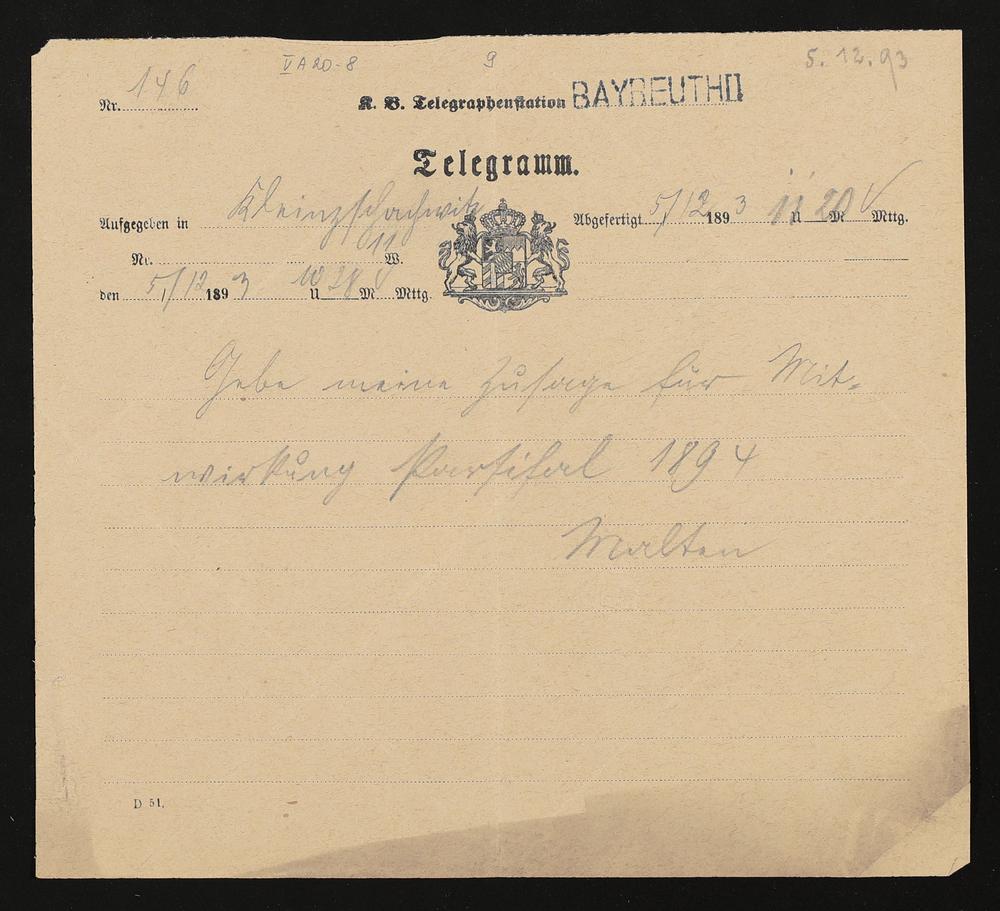 V A 20-8
9
5. 12. 93
Nr. 146
K. B. Telegraphenstation BAYREUTH II
Telegramm.
Aufgegeben in Kleinzschachwitz
Abgefertigt 5/12 1893 11 U 20 M V Mttg.
Nr. 11 W.
den 5/12 1893 10 U 38 M V Mttg.
Gebe meine Zusage für Mit-
wirkung Parsifal 1894
Malten
D 51.